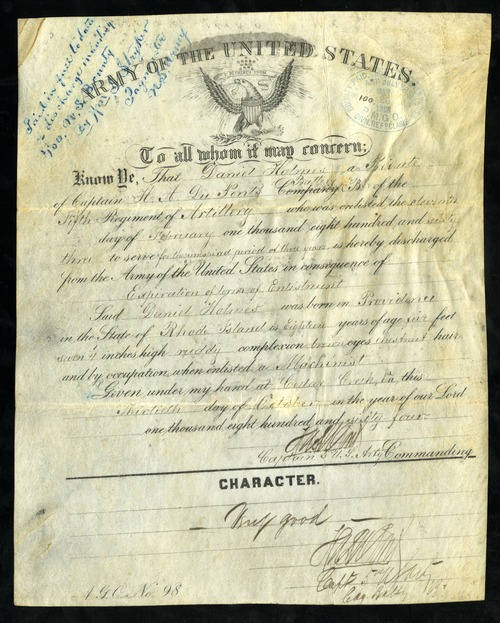 Paid in full to date
discharge including
100. U.S. Bounty
by
Paymaster
U.S. Army
ARMY OF THE UNITED STATES.
100
To all whom it may concern;
Know Ye, That Daniel Holmes a Private
of Captain H. A. Du Ponts Battery Company (B) of the
Fifth Regiment of Artillery who was enlisted the eleventh
day of February one thousand eight hundred and sixty
three to serve for the unexpired period of three years is hereby discharged
from the Army of the United States in consequence of
Expiration of term of Enlistment
Said Daniel Holmes was born in Providence
in the State of Rhode Island is Eighteen years of age five feet
seven ½ inches high, ruddy complexion, brown eyes, chestnut hair
and by occupation, when enlisted, a Machinist
Given under my hand at Cedar Creek, Va this
Thirtieth day of October in the year of our Lord
one thousand eight hundred and sixty four
Captain 5" U.S. Arty Commanding
CHARACTER.
Very good
Capt. 5"
A.G.O. No. 98